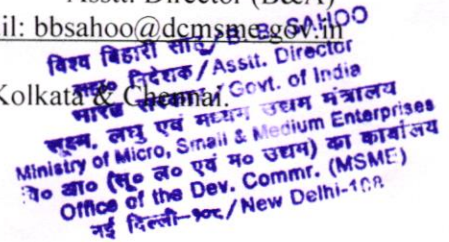 Asstt. Director (B&A)
il: bbsahoo@dcmsme.gov.in
Kolkata & Chennai.
विश्व बिहारी साहू / B. B. SAHOO
निदेशक / Asstt. Director
भारत / Govt. of India
सूक्ष्म, लघु एवं मध्यम उद्यम मंत्रालय
Ministry of Micro, Small & Medium Enterprises
वि० आ० (सू० ल० एवं म० उद्यम) का कार्यालय
Office of the Dev. Commr. (MSME)
नई दिल्ली-१०८ / New Delhi-108